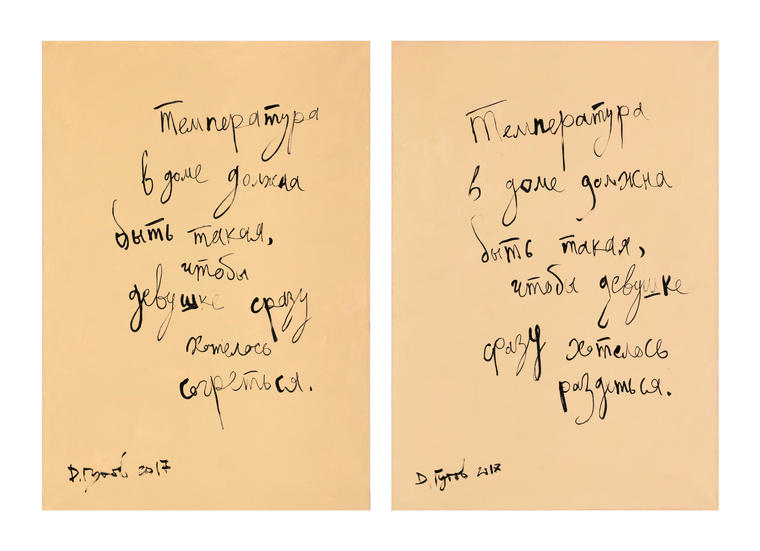 Температура
в доме должна
быть такая,
чтобы
девушке сразу
хотелось
согреться.
Д. Гутов 2017
Температура
в доме должна
быть такая,
чтобы девушке
сразу хотелось
раздеться.
Д. Гутов 2017